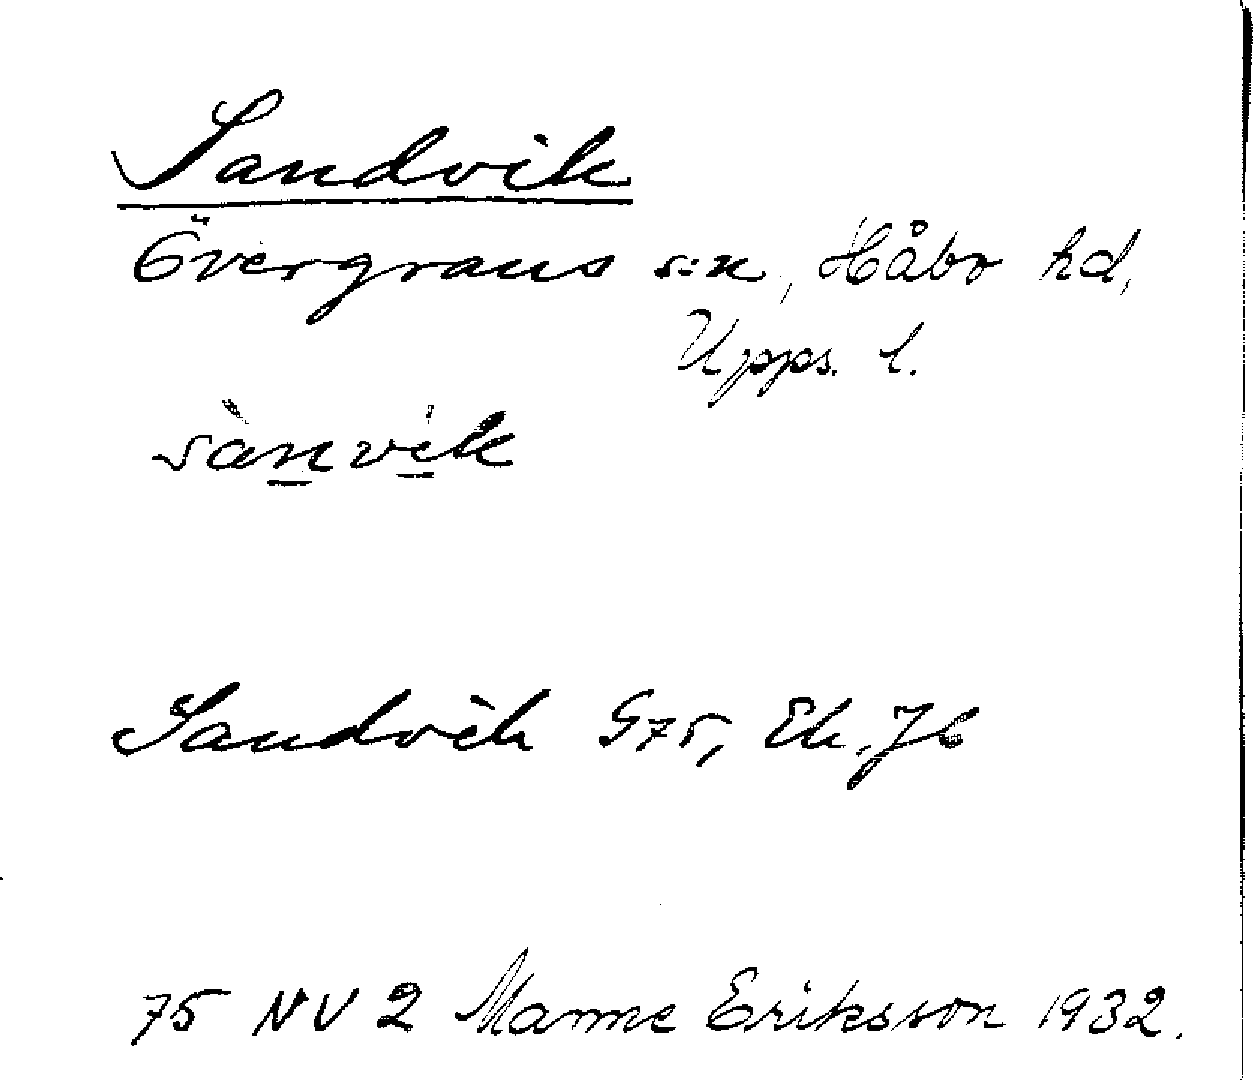 Sandvik
Övergrans s:n, Håbo hd,
Upps. l.
sànvik
Sandvik G75, Ek. Jb
75 NV 2 Manne Eriksson 1932.